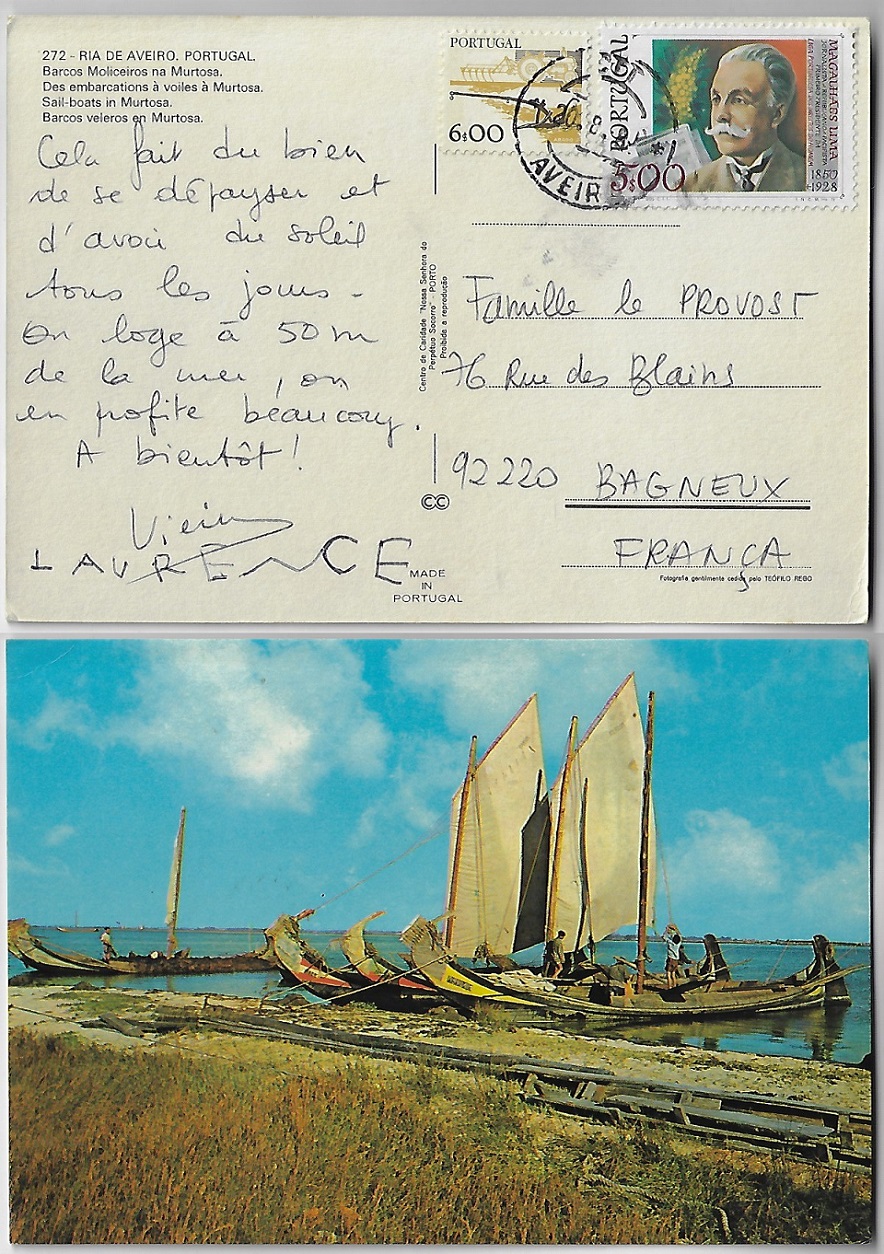 272 - RIA DE AVEIRO. PORTUGAL.
Barcos Moliceiros na Murtosa.
Des embarcations à voiles à Murtosa.
Sail-boats in Murtosa.
Barcos veleros en Murtosa.
Cela fait du bien
de se dépayser et
d'avoir du soleil
tous les jours -
On loge à 50 m
de la mer, on
en profite beaucoup.
A bientôt!
LAURENCE
MADE
IN
PORTUGAL
CC
Centro de Caridade "Nossa Senhora do
Perpétuo Socorro" - PORTO
Proibida a reprodução
PORTUGAL
6$00
PORTUGAL
5$00
MAGALHÃES LIMA
1850
1928
AVEIR
Famille le PROVOST
76 Rue des Blains
92220 BAGNEUX
FRANÇA
Fotografia gentilmente cedida pelo TEÓFILO REGO